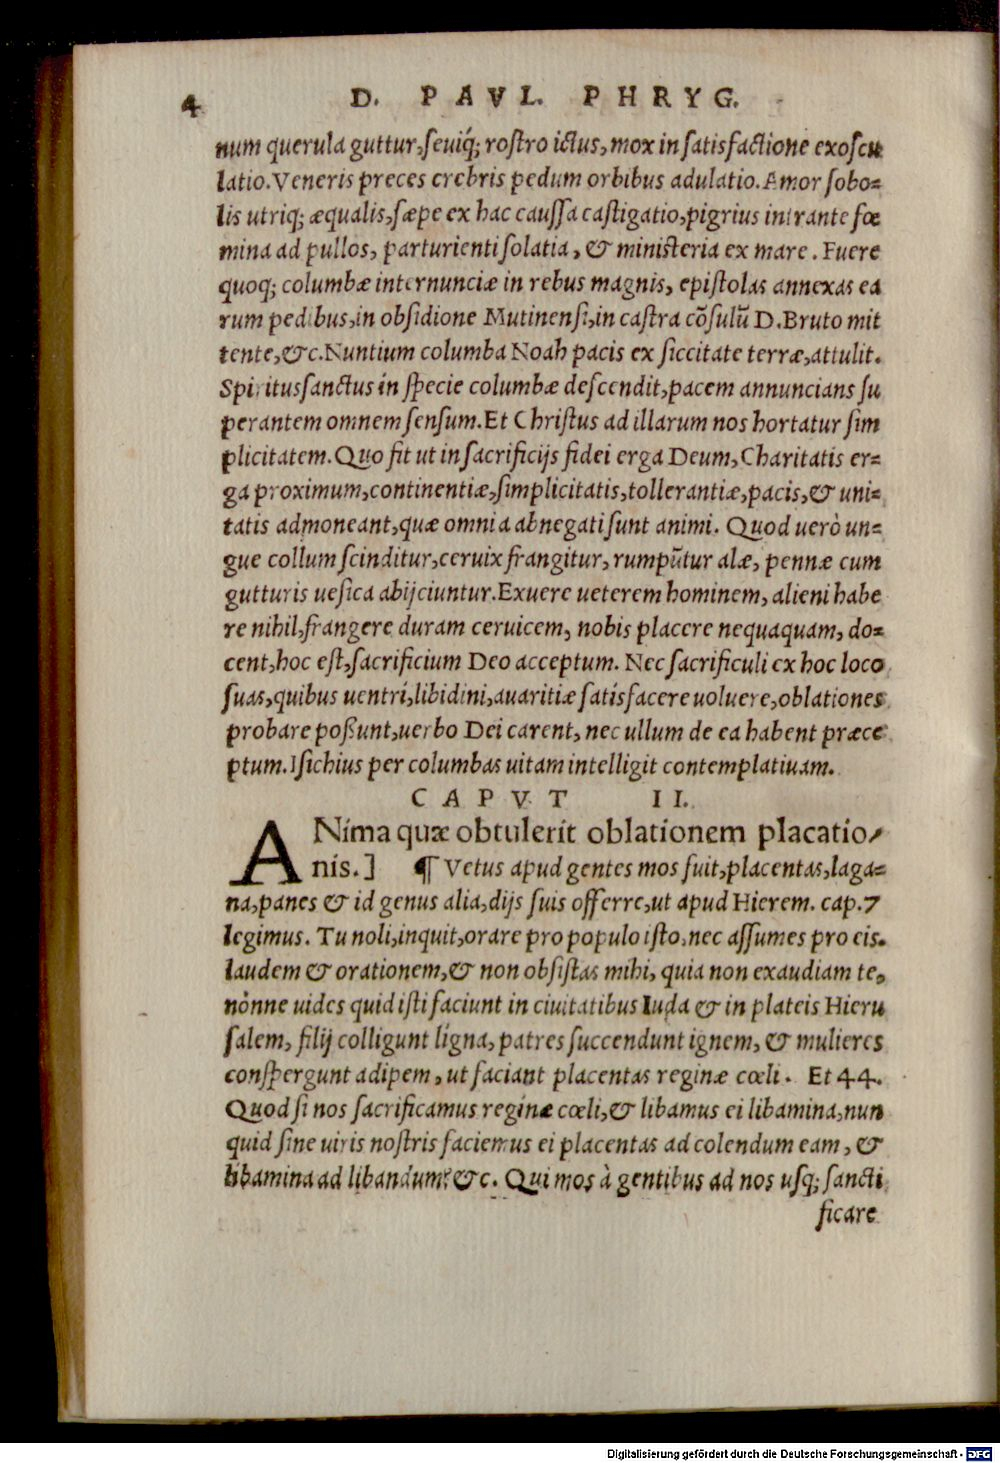 4 D. PAVL. PHRYG.
num querula guttur, seuiq́; rostro ictus, mox in satisfactione exoscu
latio. Veneris preces crebris pedum orbibus adulatio. Amor sobo=
lis utriq; æqualis, sæpe ex hac caussa castigatio, pigrius intrante fœ
mina ad pullos, parturienti solatia, & ministeria ex mare. Fuere
quoq; columbæ internunciæ in rebus magnis, epistolas annexas ea
rum pedibus, in obsidione Mutinensi, in castra cõsulũ D. Bruto mit
tente, &c. Nuntium columba Noah pacis ex siccitate terræ, attulit.
Spiritussanctus in specie columbæ descendit, pacem annuncians su
perantem omnem sensum. Et Christus ad illarum nos hortatur sim
plicitatem. Quo fit ut in sacrificijs fidei erga Deum, Charitatis er=
ga proximum, continentiæ, simplicitatis, tollerantiæ, pacis, & uni=
tatis admoneant, quæ omnia abnegati sunt animi. Quod uerò un=
gue collum scinditur, ceruix frangitur, rumpũtur alæ, pennæ cum
gutturis uesica abijciuntur. Exuere ueterem hominem, alieni habe
re nihil, frangere duram ceruicem, nobis placere nequaquam, do=
cent, hoc est, sacrificium Deo acceptum. Nec sacrificuli ex hoc loco
suas, quibus uentri, libidini, auaritiæ satisfacere uoluere, oblationes
probare possunt, uerbo Dei carent, nec ullum de ea habent præce
ptum. Isichius per columbas uitam intelligit contemplatiuam.
CAPVT II.
ANima quæ obtulerit oblationem placatio-
nis.] ¶ Vetus apud gentes mos fuit, placentas, laga=
na, panes & id genus alia, dijs suis offerre, ut apud Hierem. cap. 7
legimus. Tu noli, inquit, orare pro populo isto, nec assumes pro eis.
laudem & orationem, & non obsistas mihi, quia non exaudiam te,
nònne uides quid isti faciunt in ciuitatibus Iuda & in plateis Hieru
salem, filij colligunt ligna, patres succendunt ignem, & mulieres
conspergunt adipem, ut faciant placentas reginæ cœli. Et 44.
Quod si nos sacrificamus reginæ cœli, & libamus ei libamina, nun
quid sine uiris nostris faciemus ei placentas ad colendum eam, &
libamina ad libandum? &c. Qui mos à gentibus ad nos usq; sancti
ficare
Digitalisierung gefördert durch die Deutsche Forschungsgemeinschaft - DFG